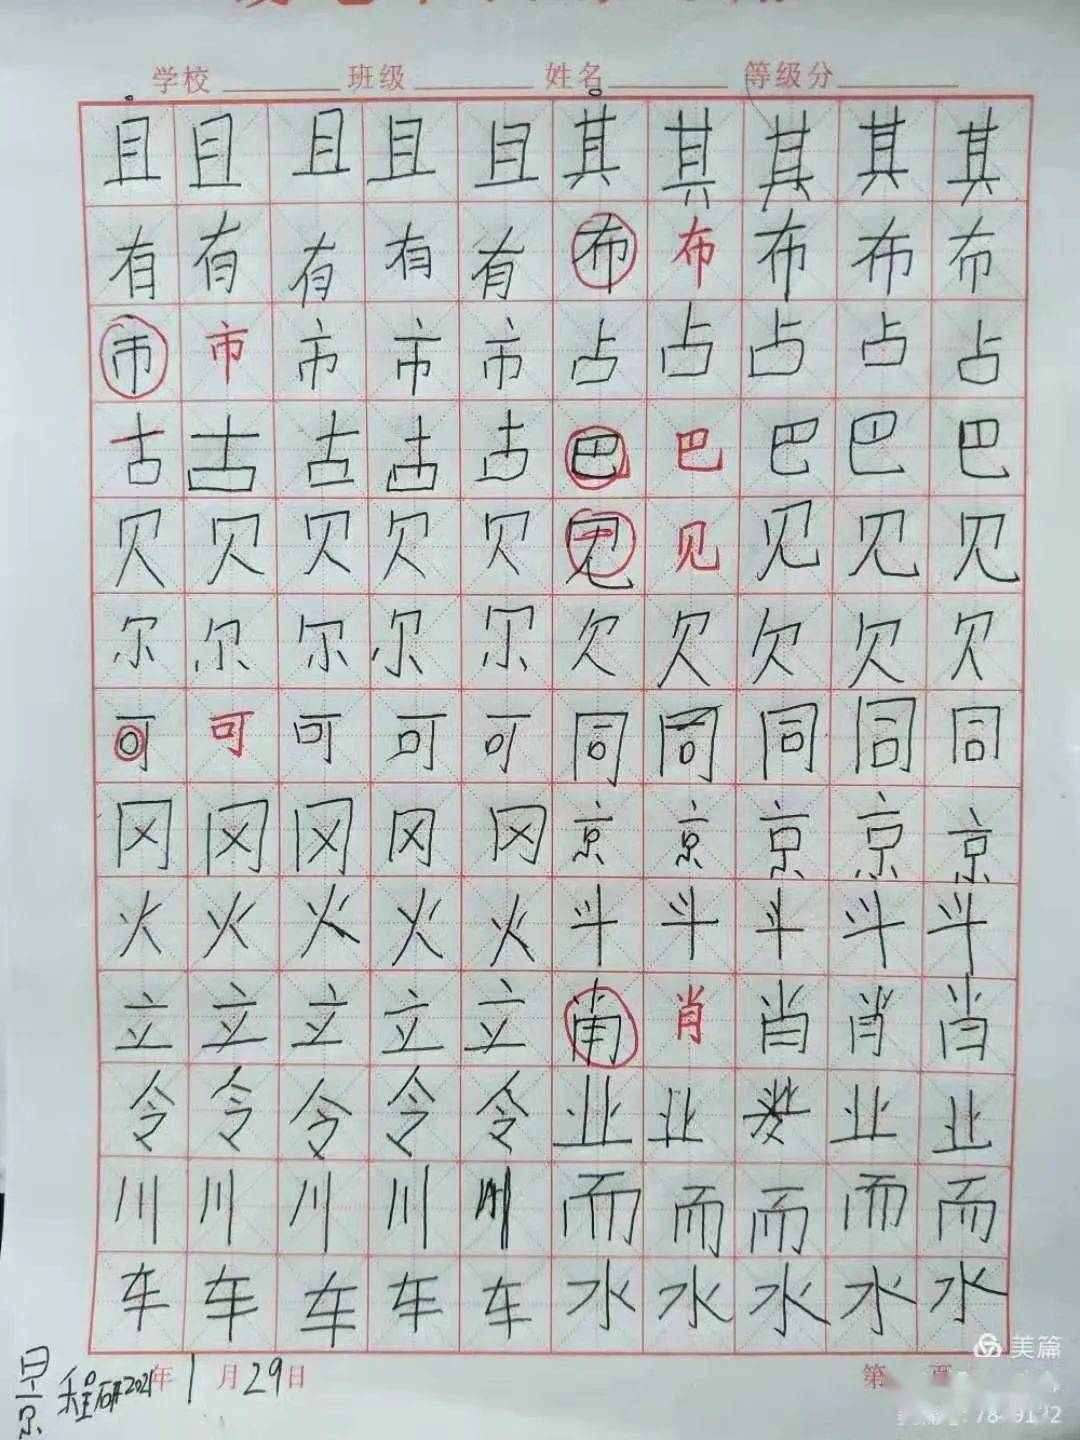 学校 班级 姓名 等级分
且且且且且其其其其其
有有有有有布布布布布
市市市市市占占占占占
古古古古古巴巴巴巴巴
贝贝贝贝贝见见见见见
尔尔尔尔尔欠欠欠欠欠
可可可可可同同同同同
冈冈冈冈冈京京京京京
火火火火火斗斗斗斗斗
立立立立立肖肖肖肖肖
令令令令令业业业业业
川川川川川而而而而而
车车车车车水水水水水
景程研2021年1月29日
第 页
美篇